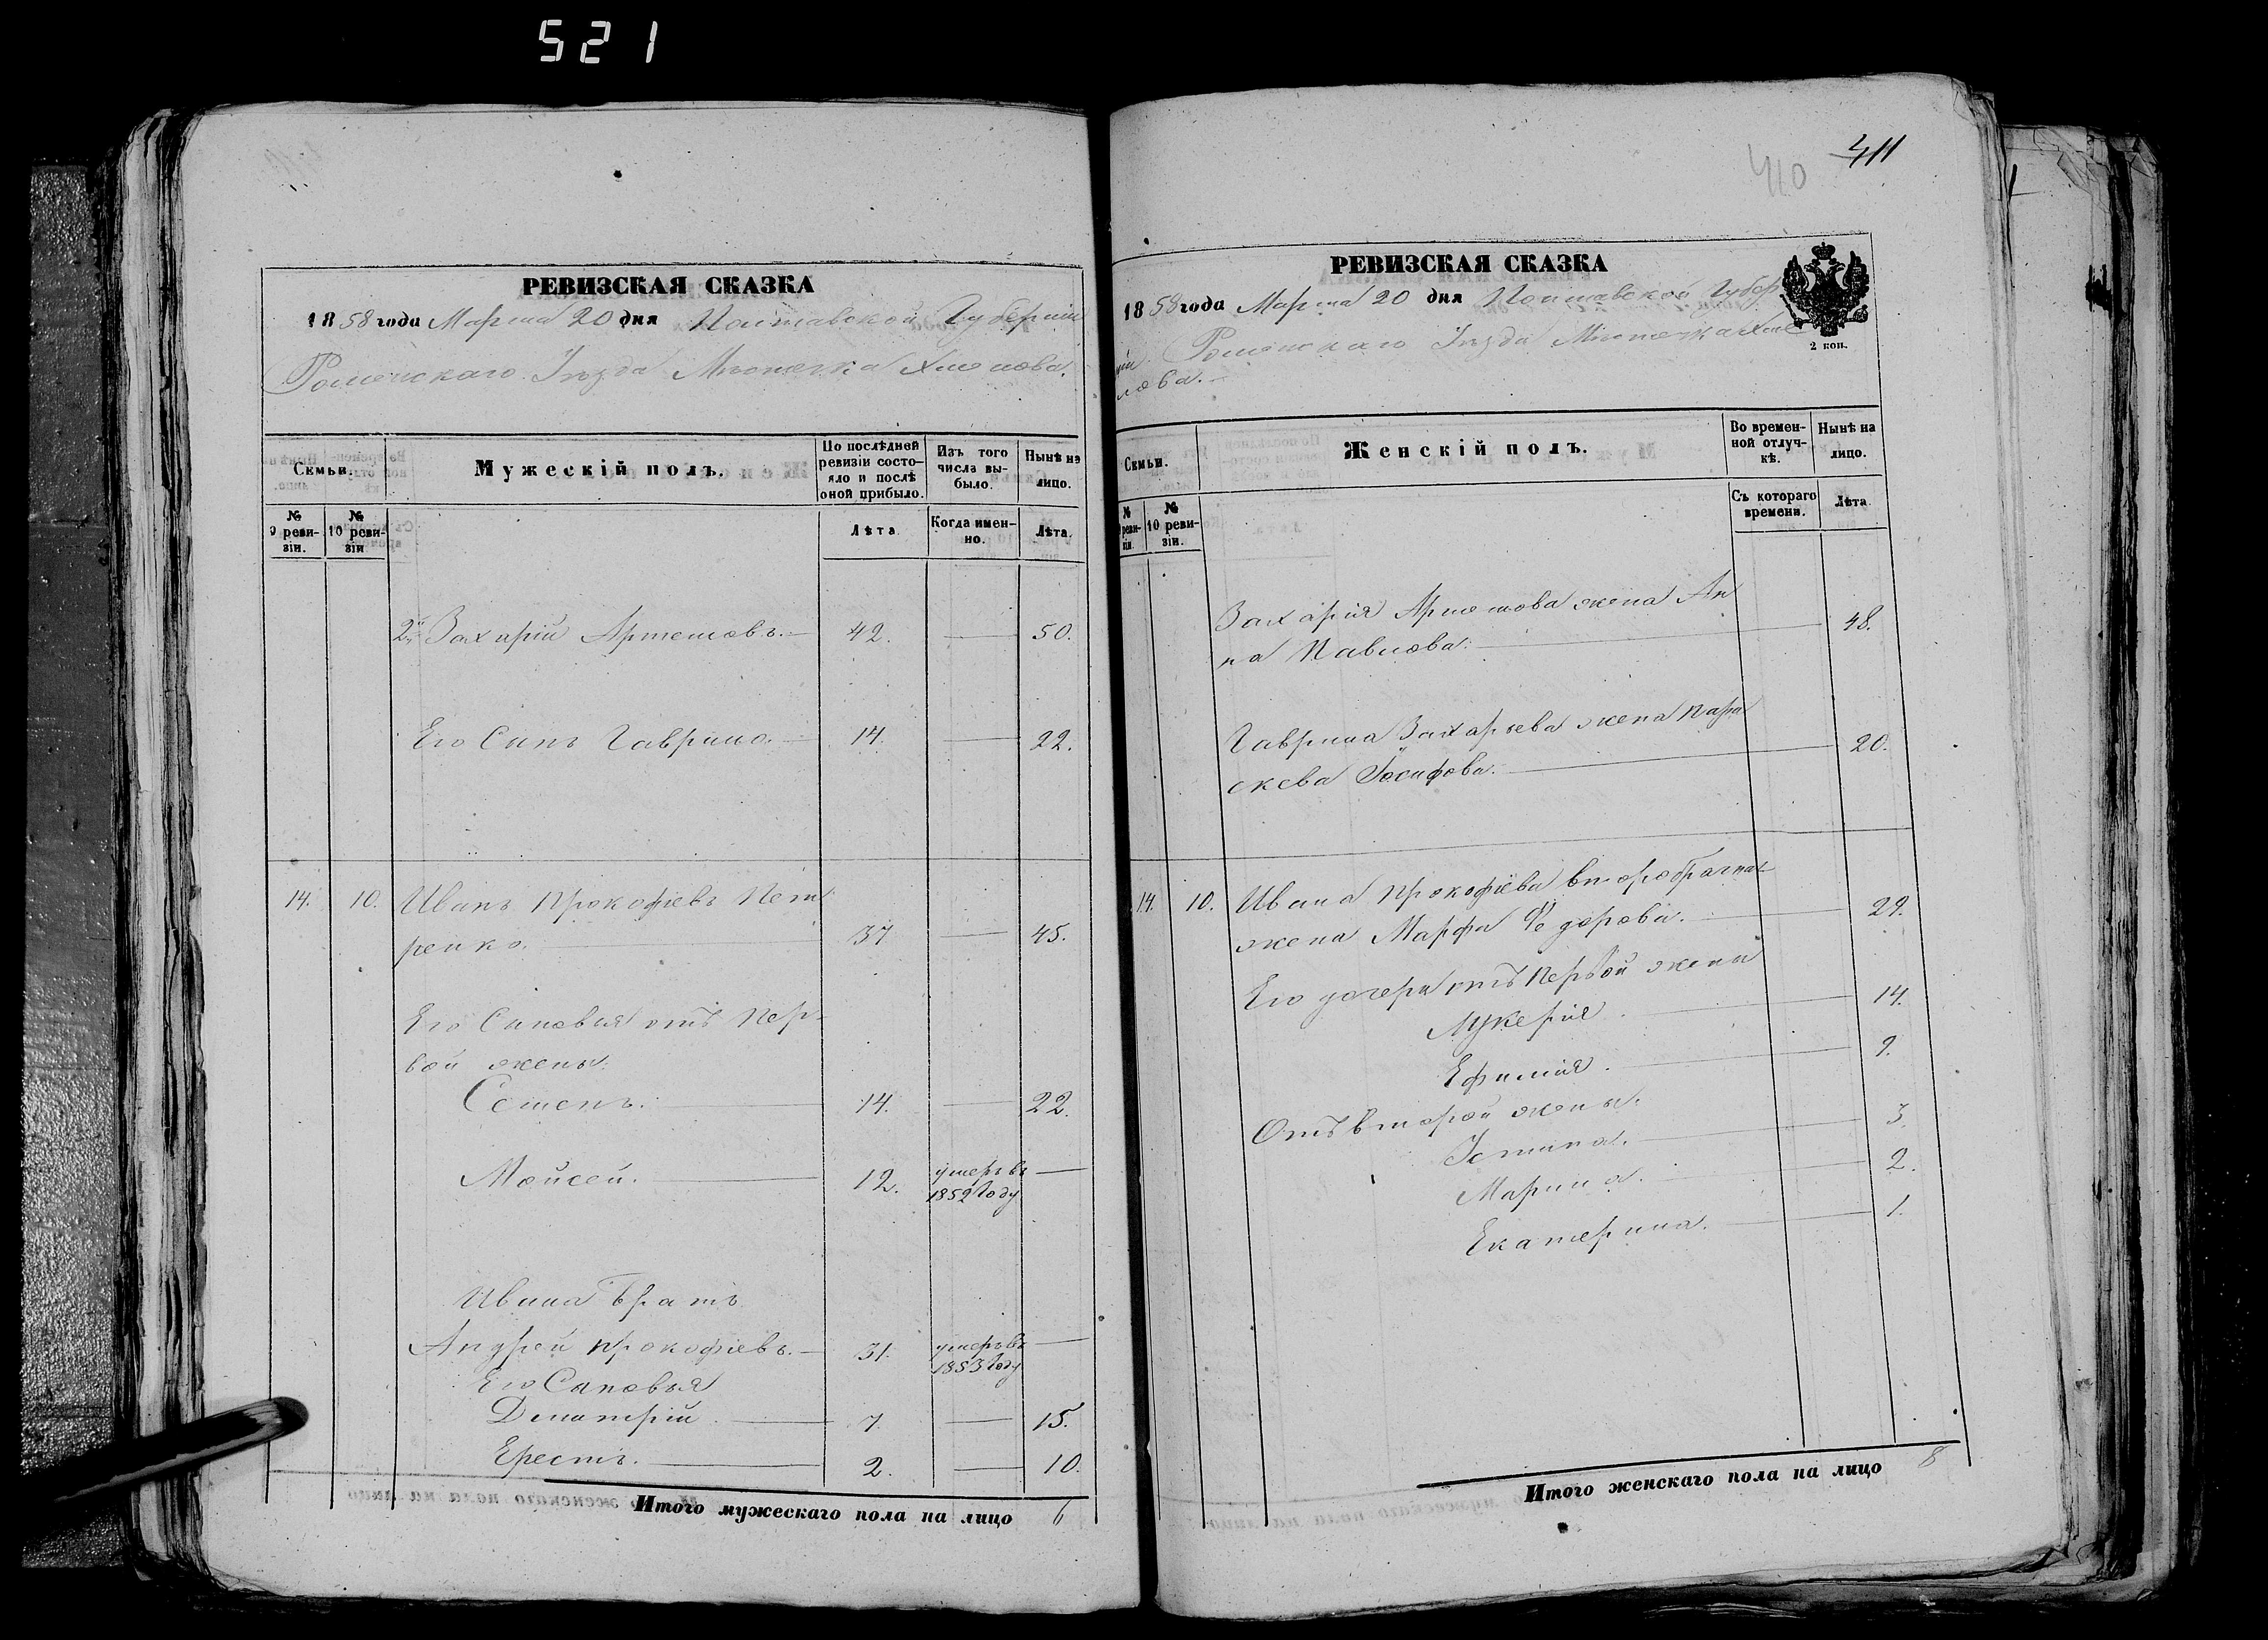 521
РЕВИЗСКАЯ СКАЗКА
1858 года Марта 20 дня Полтавской Губерніи
Роменскаго Уѣзда Мѣстечка Хмелова.
Семьи.
Мужескій полъ.
По послѣдней ревизіи состояло и послѣ оной прибыло.
Изъ того числа выбыло.
Нынѣ на лицо.
№ 9 ревизіи.
№ 10 ревизіи
Лѣта
Когда именно.
Лѣта.
2й Захарій Артемовъ. 42. 50.
Его Сынъ Гаврило. 14. 22.
14. 10. Иванъ Прокофіевъ Пет
ренко. 37 45.
Его Сыновья отъ Пер-
вой жены.
Семенъ. 14. 22.
Мойсей. 12. умеръ въ
1852 Году
Ивана Братъ
Андрей Прокофіевъ. 31. умеръ въ
1853 Году
Его Сыновья
Дмитрій. 7. 15.
Ерестъ. 2. 10.
Итого мужескаго пола на лицо 6
410 411
РЕВИЗСКАЯ СКАЗКА
1858 года Марта 20 дня Полтавской Губер
ніи Роменскаго Уѣзда Мѣстечка Хме
лова.
2 коп.
Семьи.
Женскій полъ.
Во временной отлучкѣ.
Нынѣ на лицо.
№ ревизіи
№ 10 ревизіи.
Съ котораго времени.
Лѣта
Захарія Артемова жена Ан
на Павлова. 48.
Гаврила Захарьева жена Пара
скева Іосифова. 20.
14. 10. Ивана Прокофіева второбрачная
жена Марфа Федорова. 29.
Его дочери отъ Первой жены
Лукерія. 14.
Ефимія. 9.
Отъ второй жены.
Устина. 3.
Марина. 2.
Екатерина. 1.
Итого женскаго пола на лицо 8